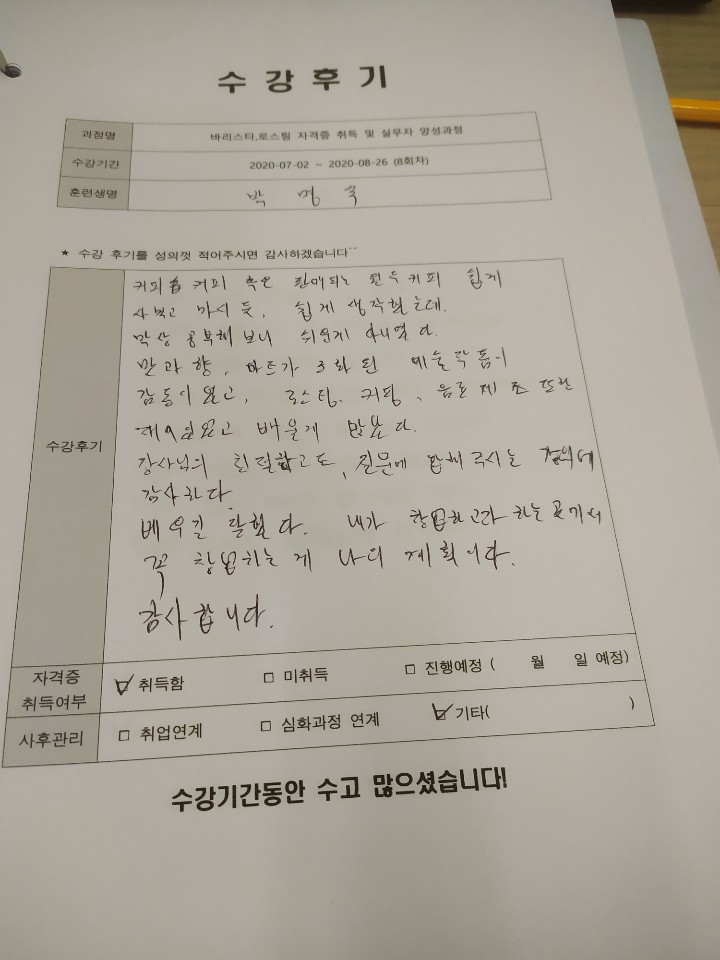 수 강 후 기
과정명 바리스타,로스팅 자격증 취득 및 실무자 양성과정
수강기간 2020-07-02 ~ 2020-08-26 (8회차)
훈련생명 박 명 숙
★ 수강 후기를 성의껏 적어주시면 감사하겠습니다~~
수강후기
커피 혹은 판매되는 원두커피 쉽게
사먹고 마시 듯, 쉽게 생각했는데,
막상 공부해 보니 쉬운게 아니였다.
맛과 향, 아트가 조화된 예술작품이
감동이 였고, 로스팅, 커핑, 음료 제조 또한
재미있었고 배울게 많았다.
강사님의 친절하고도, 질문에 답해 주시는
감사하다.
배우길 잘했다. 내가 창업하고자 하는
꼭 창업하는 게 나의 계획이다.
감사합니다.
자격증 취득여부 ☑ 취득함 □ 미취득 □ 진행예정 ( 월 일 예정)
사후관리 □ 취업연계 □ 심화과정 연계 ☑ 기타( )
수강기간동안 수고 많으셨습니다!